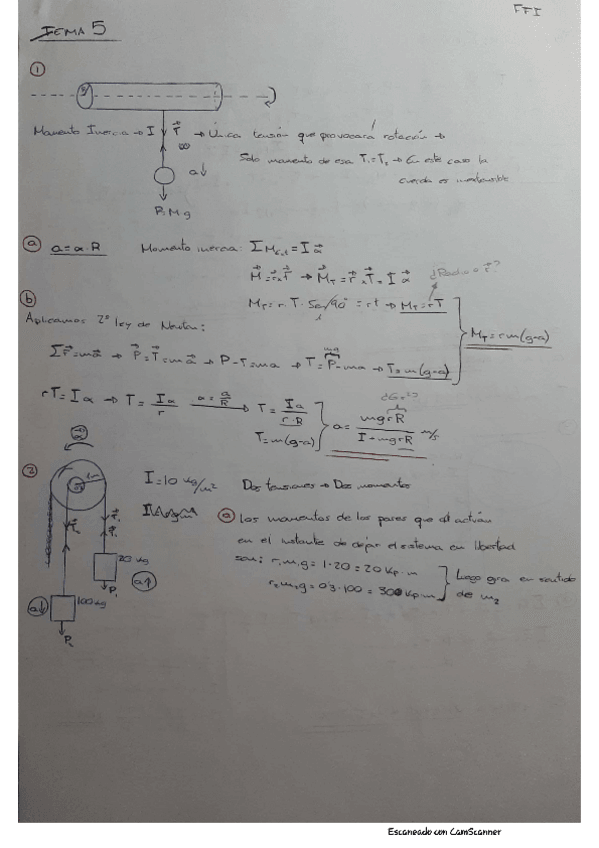 FFI
TEMA 5
①
Momento Inercia → I T → Única tensión que provocará rotación →
Solo momento de esa T₁=T₂ → En este caso la
cuerda es inextensible
a↓
P=Mg
ⓐ a=α·R Momento inercia: ΣM_Ext = Iα
M=r×T → M_T=r×T=Iα ¿Radio o r?
M_T=r·T·Sen 90°=rT → M_T=rT
M_T=rm(g-a)
ⓑ
Aplicamos 2ª ley de Newton:
ΣF=ma → P-T=ma → P-T=ma → T=P-ma → T=m(g-a)
mg
rT=Iα → T=Iα/r α=a/R → T=Ia/r·R
T=m(g-a)
a=mgrR/I+mgrR m/s
②
I=10 kg/m² Dos tensiones → Dos momentos
ⓐ Los momentos de los pares que actúan
en el instante de dejar el sistema en libertad
son: r₁m₁g=1·20=20 Kp·m
r₂m₂g=0'3·100=300Kp·m
Luego gira en sentido
de m₂
20 kg
a↑
P₁
a↓
100kg
P₂
Escaneado con CamScanner